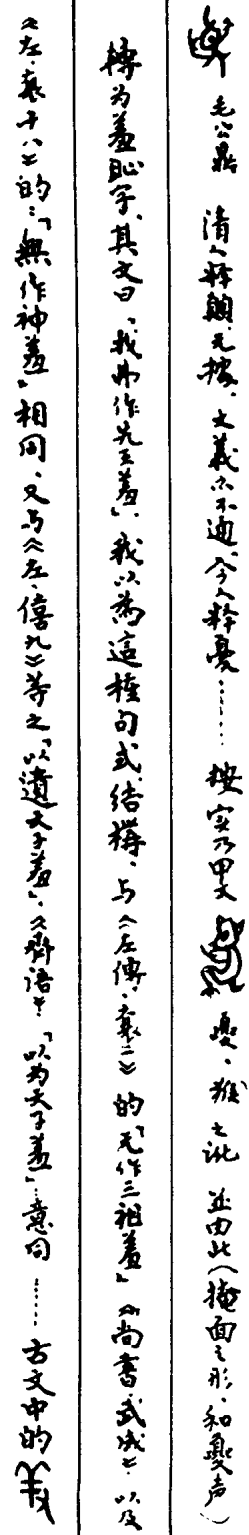 毛公鼎 清人释頵无据、文義亦不通、今人释憂…… 按实乃甲文 夒、猴之讹 並由此(掩面之形、和夒声)
轉为羞恥字、其文曰、「我弗作先王羞」、我以為這種句式结構、与《左傳·哀二》的「无作三祖羞」《尚書·武成》以及
《左·襄十八》的:「無作神羞」相同、又与《左·僖九》等之「以遺天子羞」、《齊语》「以为天子羞」…意同 …… 古文中的